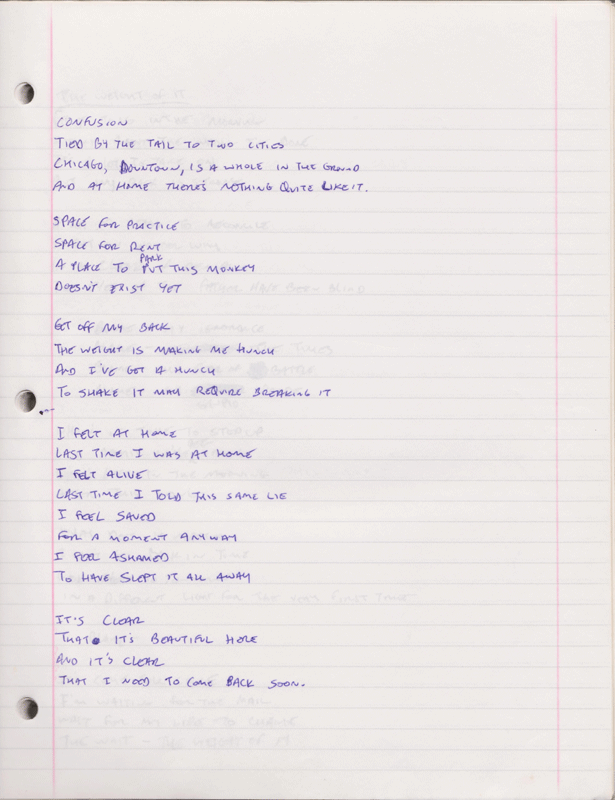 CONFUSION
TIED BY THE TAIL TO TWO CITIES
CHICAGO, DOWNTOWN, IS A WHOLE IN THE GROUND
AND AT HOME THERE'S NOTHING QUITE LIKE IT.
SPACE FOR PRACTICE
SPACE FOR RENT
PARK
A PLACE TO PUT THIS MONKEY
DOESN'T EXIST YET
GET OFF MY BACK
THE WEIGHT IS MAKING ME HUNCH
AND I'VE GOT A HUNCH
TO SHAKE IT MAY REQUIRE BREAKING IT
I FELT AT HOME
LAST TIME I WAS AT HOME
I FELT ALIVE
LAST TIME I TOLD THIS SAME LIE
I FEEL SAVED
FOR A MOMENT ANYWAY
I FEEL ASHAMED
TO HAVE SLEPT IT ALL AWAY
IT'S CLEAR
THAT IT'S BEAUTIFUL HERE
AND IT'S CLEAR
THAT I NEED TO COME BACK SOON.